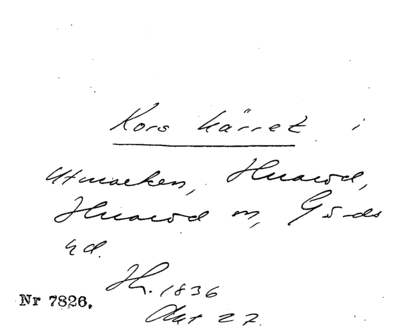 Kors kärret i
Utmarken, Hvarvd,
Hvarvd sn, Gö-ds
hd.
Jh. 1836
Akt 27
Nr 7826.